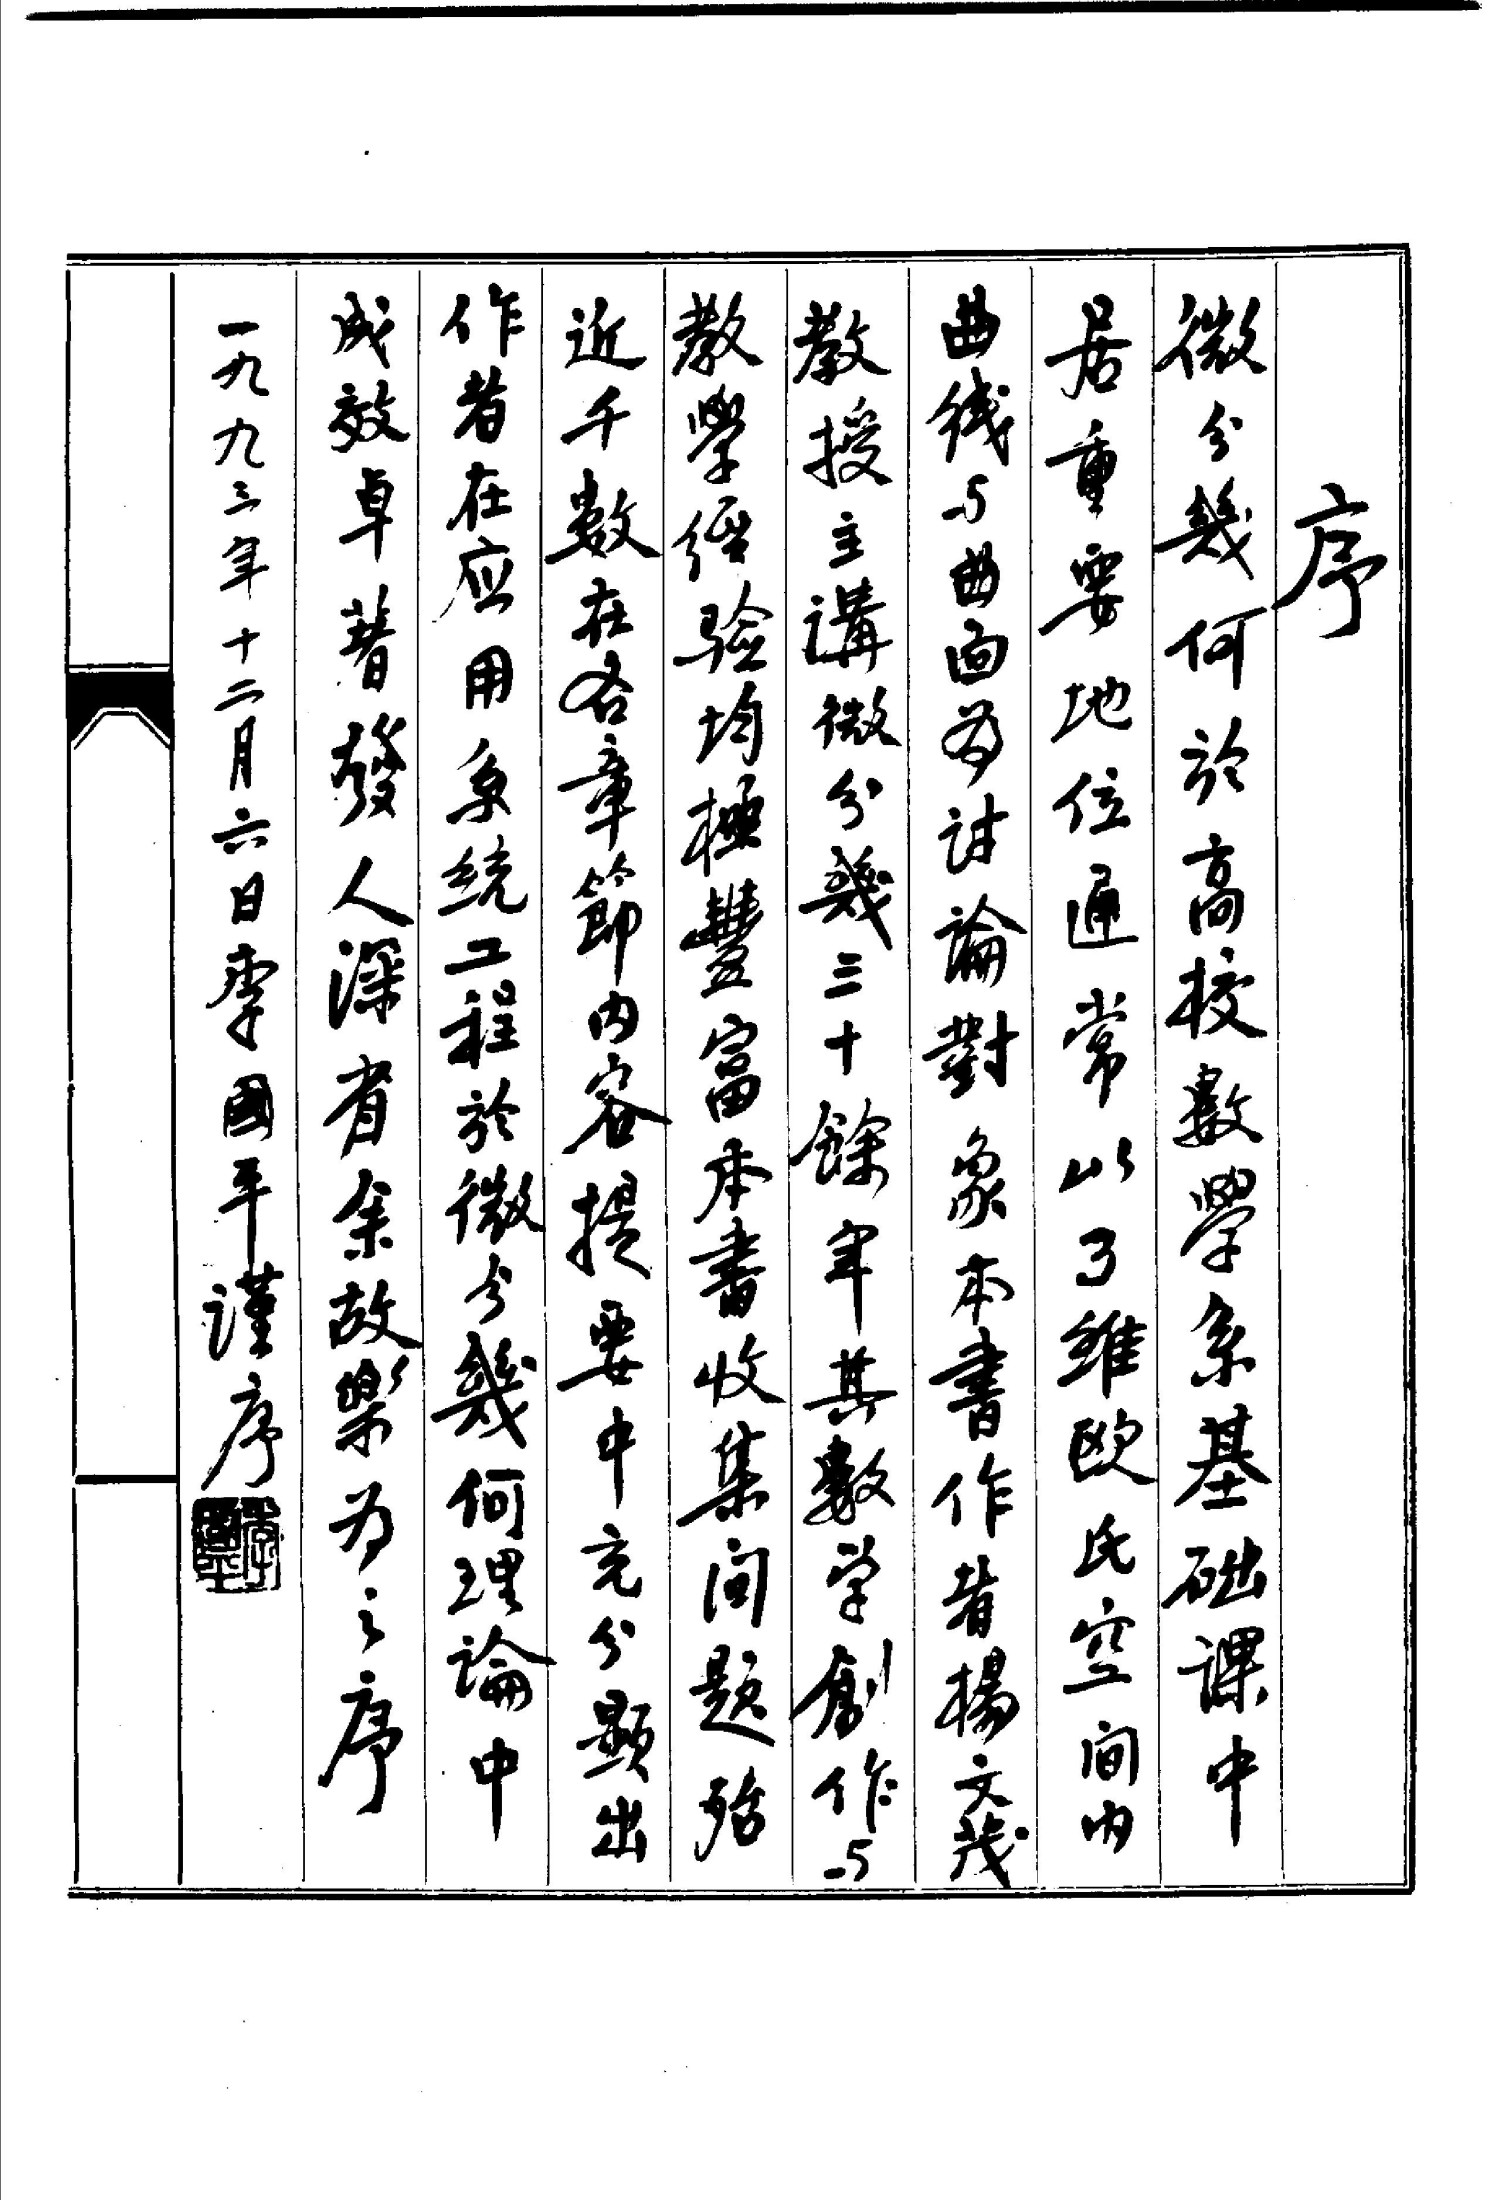 序
微分幾何於高校數學系基础課中
居重要地位通常以3維欧氏空间内
曲线与曲面为討論對象本書作者楊文茂
教授主講微分幾何三十餘年其數学創作与
教學经验均極豐富本書收集问题殆
近千數在各章節内容提要中充分顕出
作者在应用系统工程於微分幾何理論中
成效卓著發人深省余故樂为之序
一九九三年十二月六日李國平谨序